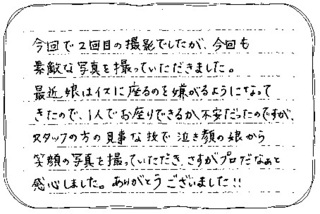 今回で2回目の撮影でしたが、今回も
素敵な写真を撮っていただきました。
最近娘はイスに座るのを嫌がるようになって
きたので、1人でお座りできるか不安だったのですが、
スタッフの方の見事な技で泣き顔の娘から
笑顔の写真を撮っていただき、さすがプロだなぁと
感心しました。ありがとうございました!!